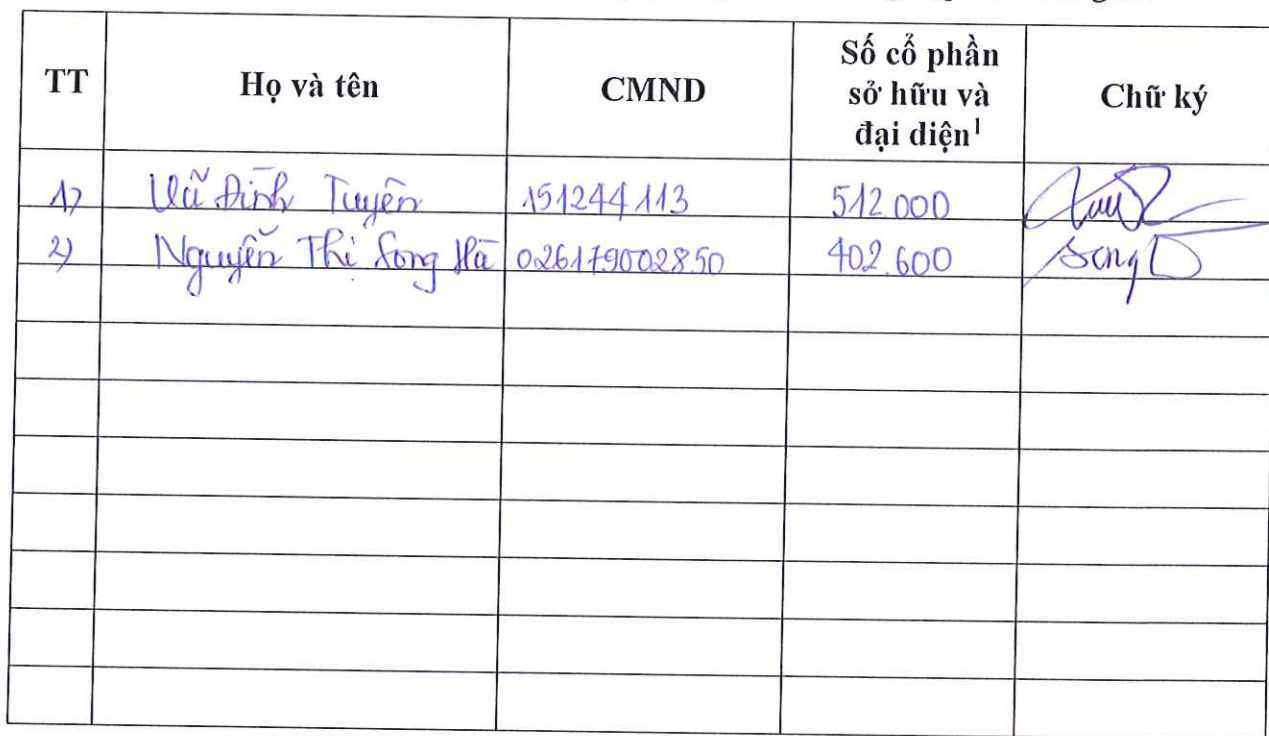 TT Họ và tên CMND Số cổ phần sở hữu và đại diện¹ Chữ ký
1) Vũ Đình Tuyên 151244113 512.000
2) Nguyễn Thị Song Hà 026179002850 402.600 Song